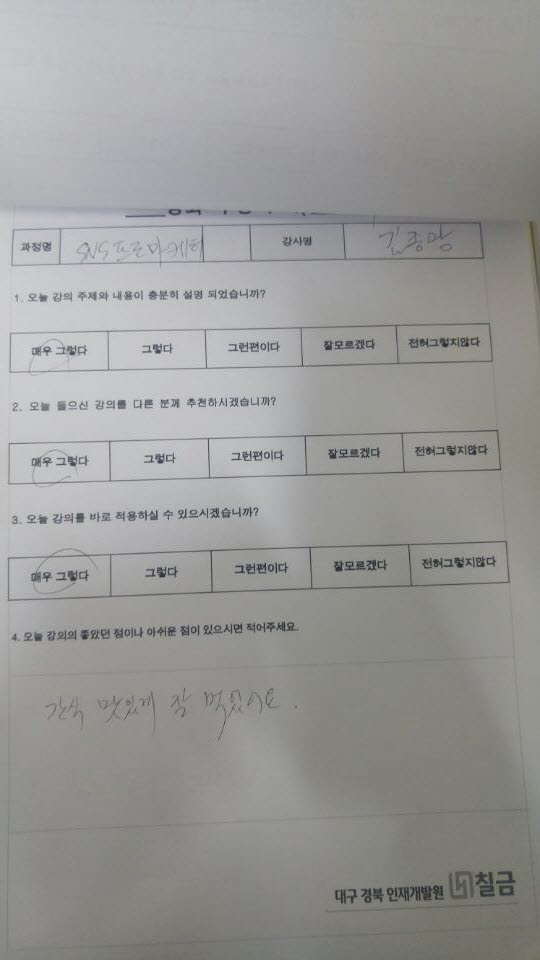 과정명 SNS프로마케터 강사명 김종광
1. 오늘 강의 주제와 내용이 충분히 설명 되었습니까?
매우 그렇다 그렇다 그런편이다 잘모르겠다 전혀그렇지않다
2. 오늘 들으신 강의를 다른 분께 추천하시겠습니까?
매우 그렇다 그렇다 그런편이다 잘모르겠다 전혀그렇지않다
3. 오늘 강의를 바로 적용하실 수 있으시겠습니까?
매우 그렇다 그렇다 그런편이다 잘모르겠다 전혀그렇지않다
4. 오늘 강의의 좋았던 점이나 아쉬운 점이 있으시면 적어주세요.
간식 맛있게 잘 먹었어요.
대구 경북 인재개발원 칠금